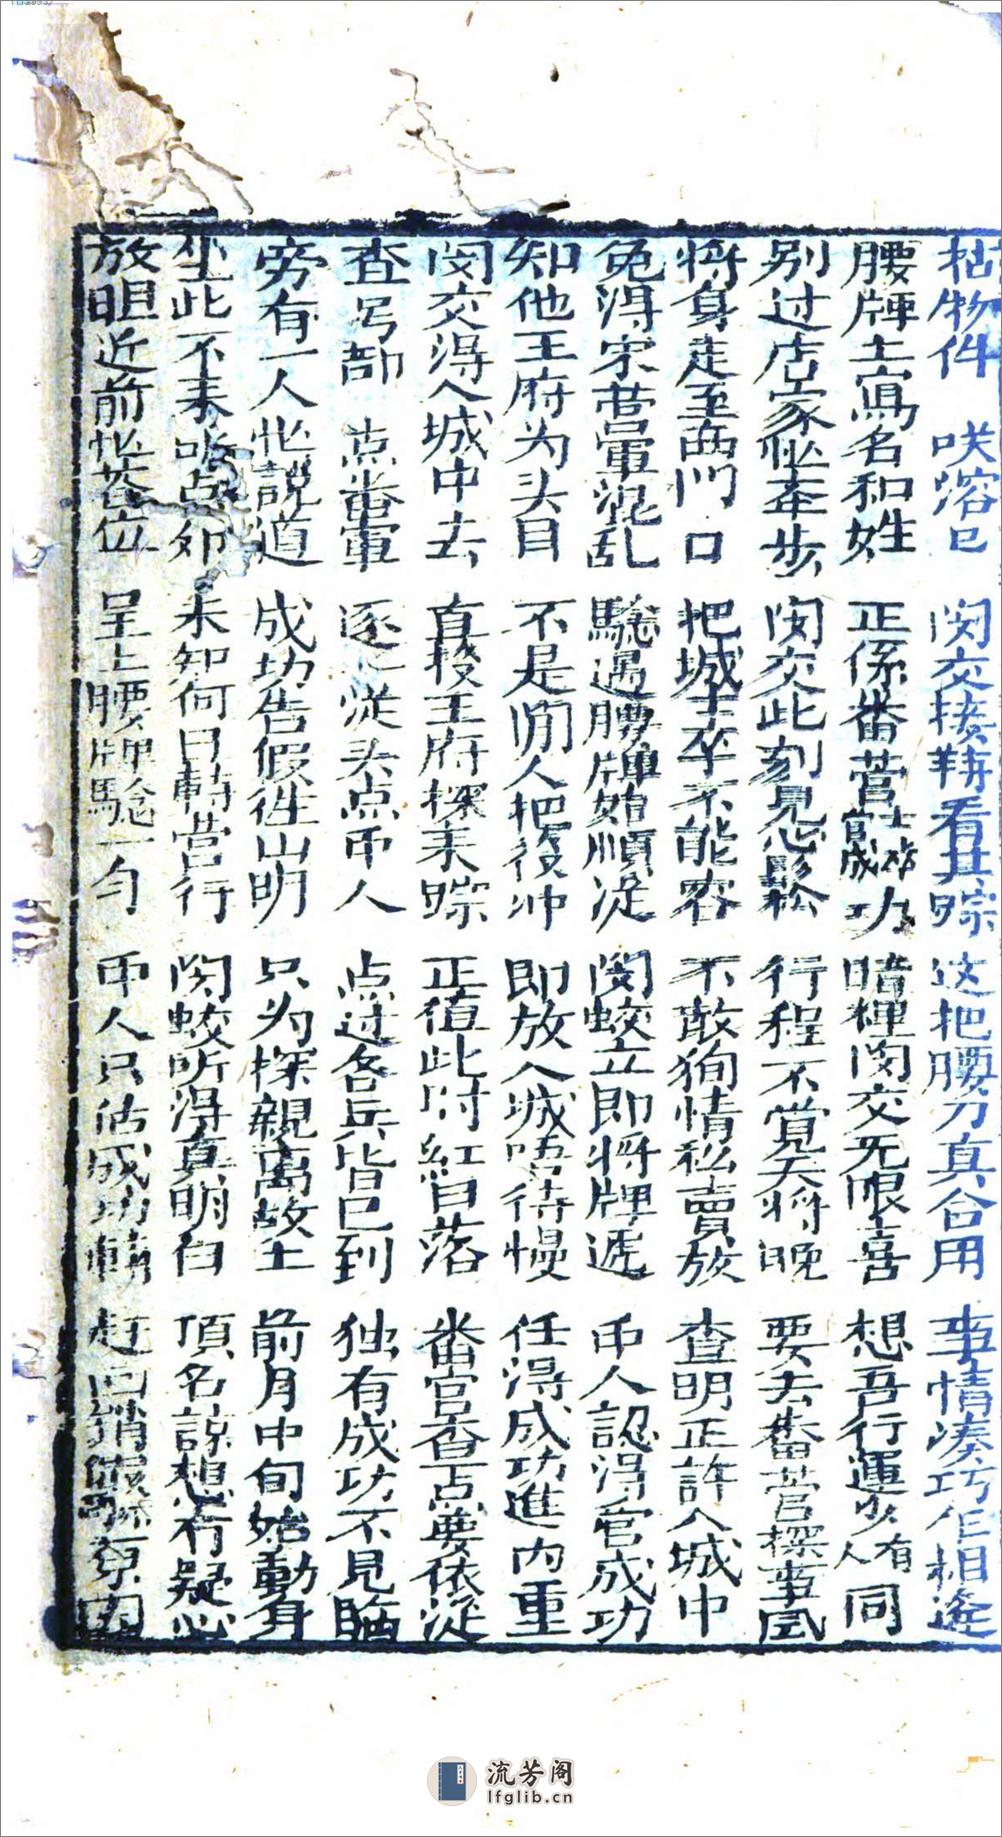 拈物件 咲溶已 闵交揍𨋢看其踪 这把腰刀真合用 事情凑巧乍相逢
腰牌上寫名和姓 正係番营士卒官成功 暗裡闵交无限喜 想吾行運少有人同
别过店家忙奔步 闵交此刻見心鬆 行程不覚天将晚 要去番营探事風
将身走至西门口 把城士卒不能容 不敢狥情私賣放 查明正許入城中
免得宋营軍混乱 驗过腰牌始順從 闵蛟立即将牌遞 帀人認得官成功
知他王府为头目 不是閒人把役冲 即放入城唔待慢 任得成功進内重
闵交得入城中去 直投王府探来踪 正值此时紅日落 番官查点要依從
查号部 点番軍 逐一從头点帀人 点过各兵皆已到 独有成功不見臨
旁有一人忙説道 成功告假徃山明 只为探親离故土 前月中旬始動身
坐此不来 点卯 未知何日轉营行 闵蛟听得真明白 頂名諒想冇疑心
放胆近前忙荅应 呈上腰牌驗一匀 帀人只估成功轉 赶回 内
流芳阁
lfglib.cn